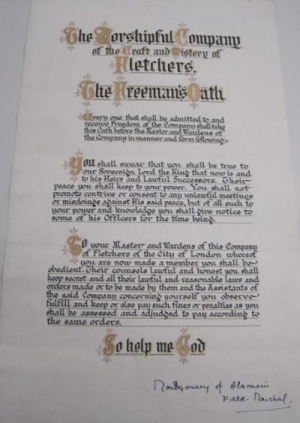 The Worshipful Company
of the Craft and Mistery of
Fletchers.
The Freeman's Oath
Every one that shall be admitted to and
receive Freedom of the Company shall take
this Oath before the Master and Wardens of
the Company in manner and form following:
You shall swear that you shall be true to
our Sovereign Lord the King that now is and
to his Heirs and Lawful Successors. Their
peace you shall keep to your power. You shall not
promote contrive or consent to any unlawful meetings
or misdoings against His said peace, but of all such to
your power and knowledge you shall give notice to
some of his Officers for the time being.
To your Master and Wardens of this Company
of Fletchers of the City of London whereof
you are now made a member you shall be
obedient. Their counsels lawful and honest you shall
keep secret and all their lawful and reasonable laws and
orders made or to be made by them and the Assistants of
the said Company concerning yourself you observe
fulfill and keep or else pay such fines or penalties as you
shall be assessed and adjudged to pay according to
the same orders.
So help me God
Montgomery of Alamein
Field-Marshal